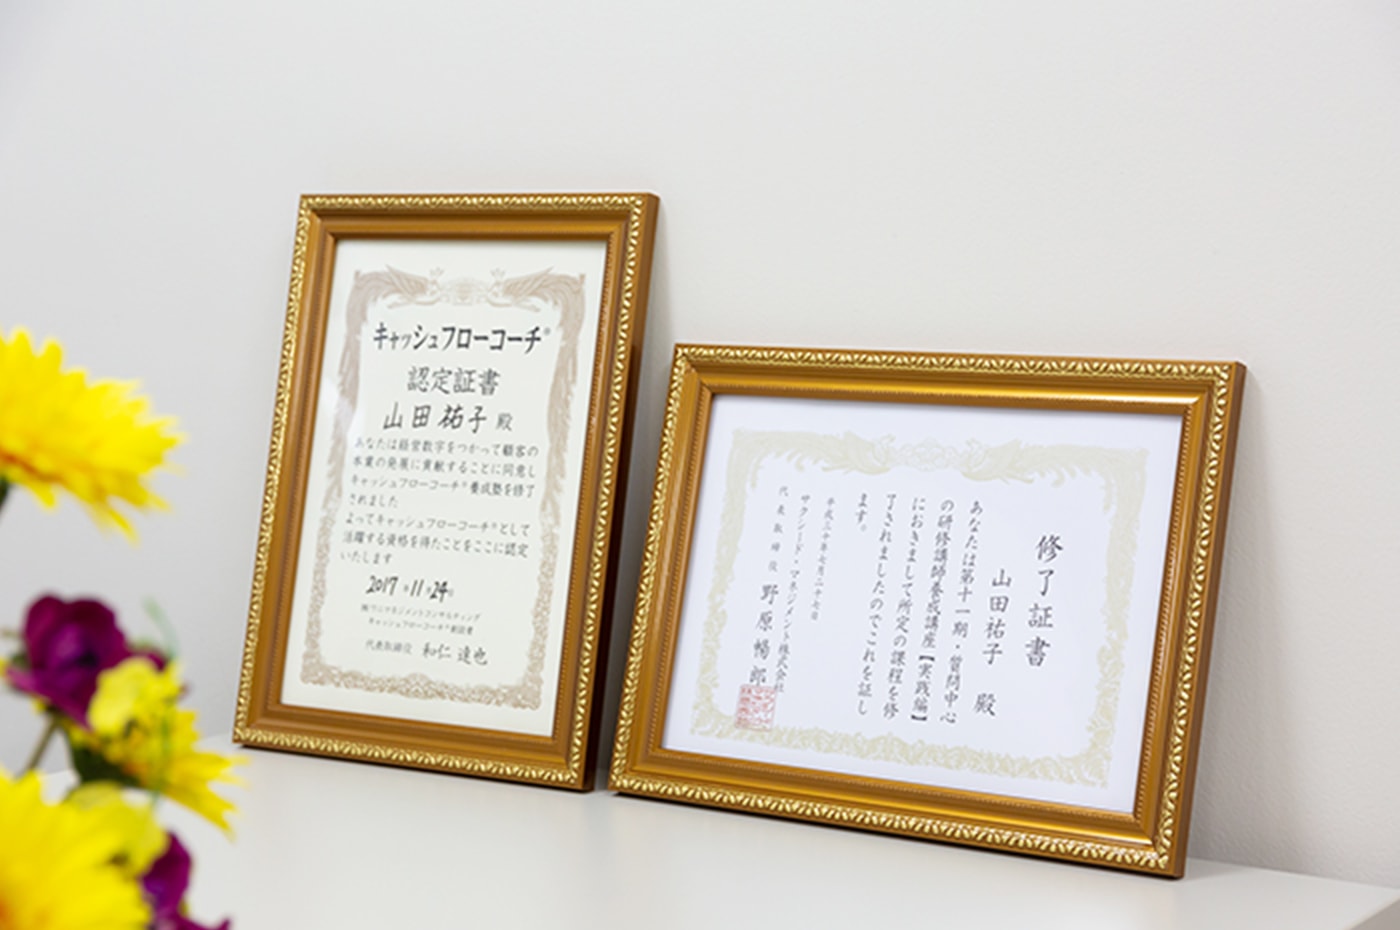 キャッシュフローコーチ®
認定証書
山田祐子 殿
あなたは経営数字をつかって顧客の
本業の発展に貢献することに同意し
キャッシュフローコーチ®養成塾を修了
されました
よってキャッシュフローコーチ®として
活躍する資格を得たことをここに認定
いたします
2017年11月24日
㈱ワニマネジメントコンサルティング
キャッシュフローコーチ®創設者
代表取締役 和仁 達也
修了証書
山田祐子 殿
あなたは第十一期・質問中心
の研修講師養成講座【実践編】
におきまして所定の課程を修
了されましたのでこれを証し
ます。
平成三十年七月二十七日
サクシード・マネジメント株式会社
代表取締役 野原暢郎